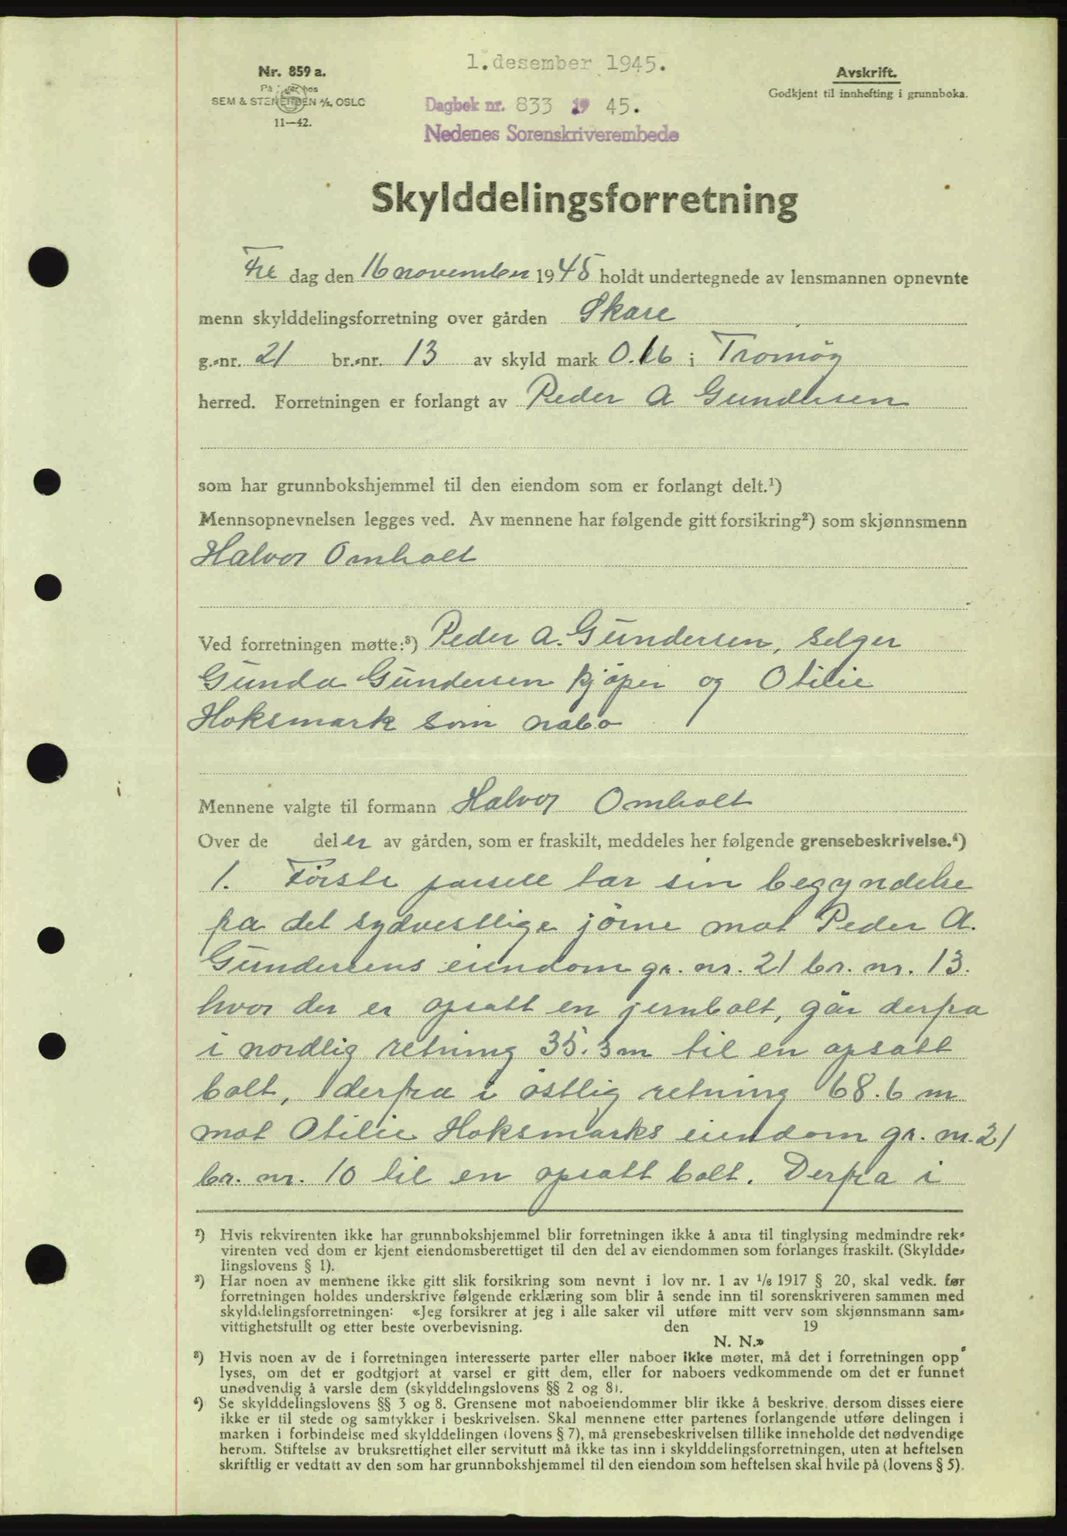 1. desember 1945.
Nr. 859 a.
SEM & STENERSEN A/S, OSLO
11—42.
Avskrift.
Godkjent til innhefting i grunnboka.
Dagbok nr. 833 19 45.
Nedenes Sorenskriverembede
Skylddelingsforretning
Fre dag den 16 november 1945 holdt undertegnede av lensmannen opnevnte
menn skylddelingsforretning over gården Skare
g.-nr. 21 br.-nr. 13 av skyld mark 0.16 i Tromøy
herred. Forretningen er forlangt av Peder A Gundersen
som har grunnbokshjemmel til den eiendom som er forlangt delt.¹)
Mennsopnevnelsen legges ved. Av mennene har følgende gitt forsikring²) som skjønnsmenn
Halvor Omholt
Ved forretningen møtte:³) Peder A. Gundersen, selger
Gunda Gundersen kjøper og Otilie
Hoksmark som nabo
Mennene valgte til formann Halvor Omholt
Over de deler av gården, som er fraskilt, meddeles her følgende grensebeskrivelse.⁴)
1. Første parsell tar sin begyndelse
fra det sydvestlige jörne mot Peder A.
Gundersens eiendom gr. nr. 21 br. nr. 13.
hvor der er opsatt en jernbolt, går derfra
i nordlig retning 35.3 m til en opsatt
bolt, derfra i östlig retning 68.6 m
mot Otilie Hoksmarks eiendom gr. nr. 21
br. nr. 10 til en opsatt bolt. Derfra i
¹) Hvis rekvirenten ikke har grunnbokshjemmel blir forretningen ikke å anta til tinglysing medmindre rek-
virenten ved dom er kjent eiendomsberettiget til den del av eiendommen som forlanges fraskilt. (Skyldde-
lingslovens § 1).
²) Har noen av mennene ikke gitt slik forsikring som nevnt i lov nr. 1 av 1/6 1917 § 20, skal vedk. før
forretningen holdes underskrive følgende erklæring som blir å sende inn til sorenskriveren sammen med
skylddelingsforretningen: «Jeg forsikrer at jeg i alle saker vil utføre mitt verv som skjønnsmann sam-
vittighetsfullt og etter beste overbevisning. den 19
N. N.»
³) Hvis noen av de i forretningen interesserte parter eller naboer ikke møter, må det i forretningen opp-
lyses, om det er godtgjort at varsel er gitt dem, eller for naboers vedkommende om det er funnet
unødvendig å varsle dem (skylddelingslovens §§ 2 og 8).
⁴) Se skylddelingslovens §§ 3 og 8. Grensene mot naboeiendommer blir ikke å beskrive, dersom disses eiere
ikke er til stede og samtykker i beskrivelsen. Skal mennene etter partenes forlangende utføre delingen i
marken i forbindelse med skylddelingen (lovens § 7), må grensebeskrivelsen tillike inneholde det nødvendige
herom. Stiftelse av bruksrettighet eller servitutt må ikke tas inn i skylddelingsforretningen, uten at heftelsen
skriftlig er vedtatt av den som har grunnbokshjemmel til den eiendom som heftelsen skal hvile på (lovens § 5).